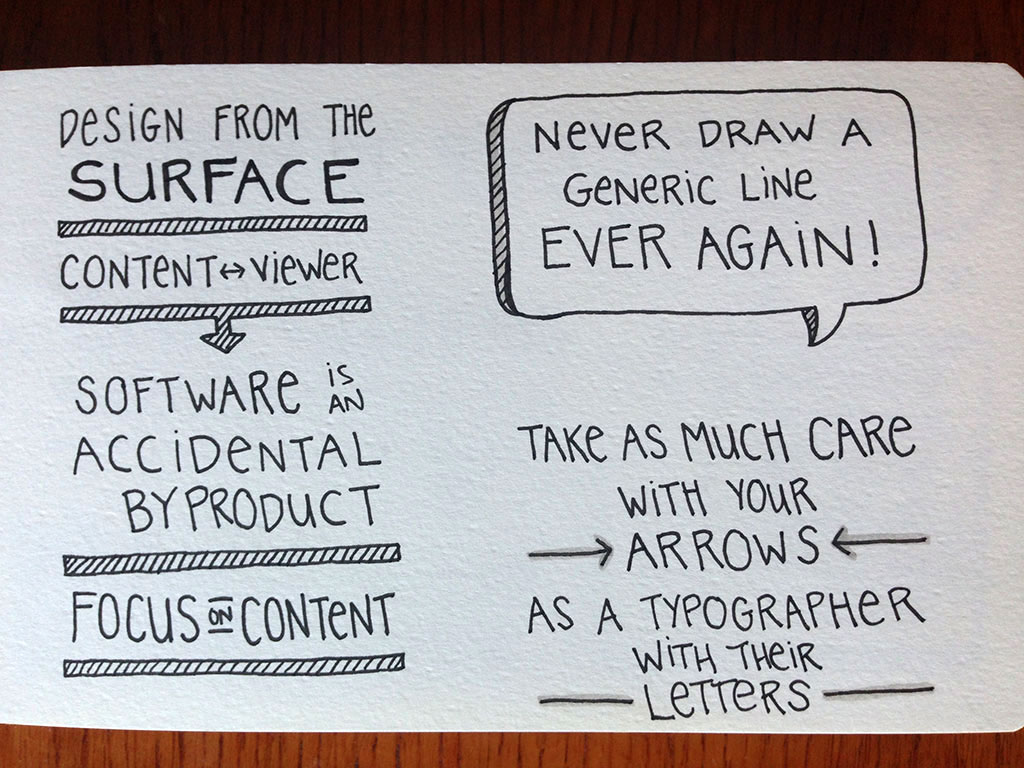 DESiGN FROM THE
SURFACE
CONTENT↔ViEWER
SOFTWARE iS AN
ACCiDENTAL
BYPRODUCT
FOCUS ON CONTENT
NEVER DRAW A
GENERiC LiNE
EVER AGAiN!
TAKE AS MUCH CARE
WiTH YOUR
→ ARROWS ←
AS A TYPOGRAPHER
WiTH THEiR
LETTERS